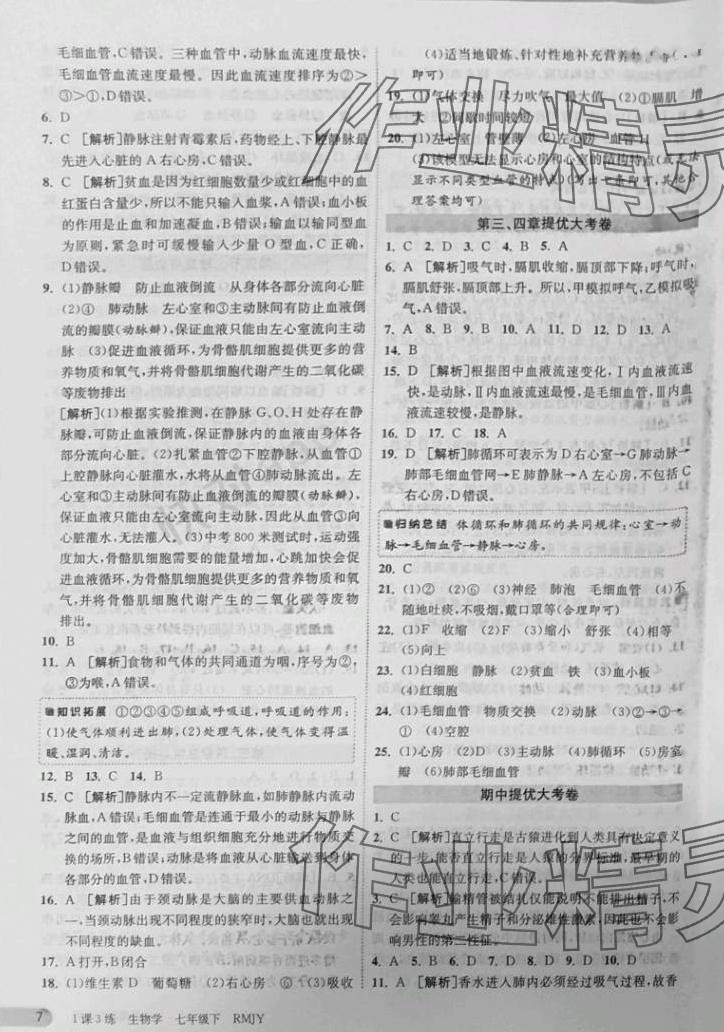 毛细血管,C错误。三种血管中,动脉血流速度最快,
毛细血管血流速度最慢。因此血流速度排序为②>
③>①,D错误。
6. D
7. C [解析]静脉注射青霉素后,药物经上、下腔静脉最
先进入心脏的A右心房,C错误。
8. C [解析]贫血是因为红细胞数量少或红细胞中的血
红蛋白含量少,所以不可能只输入血浆,A错误。血小板
的作用是止血和加速凝血,B错误。输血以输同型血为
原则,紧急时可缓慢少量输O型血,C正确,
D错误。
9. (1)静脉瓣 防止血液倒流 从身体各部分流向心脏
(2)④ 肺动脉 左心室和③主动脉间有防止血液倒
流的瓣膜(动脉瓣),保证血液只能由左心室流向主动
脉 (3)促进血液循环,为骨骼肌细胞提供更多的营
养物质和氧气,并将骨骼肌细胞代谢产生的二氧化碳
等废物排出
[解析](1)根据实验推测,在静脉G、O、H处存在静脉
瓣,可防止血液倒流,保证静脉内的血液由身体各部分
流向心脏。(2)扎紧A血管②下腔静脉,从B血管①
上腔静脉向心脏灌水,水将从血管④肺动脉流出。左
心室和③主动脉间有防止血液倒流的瓣膜(动脉瓣),
保证血液只能由左心室流向主动脉,从C血管③主动
脉向心脏灌水,无法灌入。(3)中考800米测试时,运动强
度加大,骨骼肌细胞需要的能量增加,心跳加快会促
进血液循环,为骨骼肌细胞提供更多的营养物质和氧
气,并将骨骼肌细胞代谢产生的二氧化碳等废物
排出。
10. B
11. A [解析]食物和气体的共同通道为咽,序号为②,
③为喉,A错误。
知识拓展 ①②③④⑤组成呼吸道,呼吸道的作用:
(1)使气体顺利进出肺,(2)处理气体,使气体变得温
暖、湿润、清洁。
12. B 13. C 14. B
15. C [解析]静脉内不一定流静脉血,如肺静脉内流动
脉血,A错误。毛细血管是连通于最小的动脉与静脉
之间的血管,是血液与组织细胞充分地进行物质交
换的场所,B错误。毛细血管内血流速度最慢,D错误。
16. A [解析]由于颈动脉是大脑的主要供血动脉之
一,当颈动脉出现不同程度的狭窄时,大脑也会出现
不同程度的缺血。
17. A打开,B闭合
18. (1)维生素D 葡萄糖 (2)右心房 (3)⑥ (3)吸收
(4)适当地锻炼、针对性地补充营养
即可)
19. (1)气体交换 尽力吹气 最大值 (2)①膈肌 增
大 ②间歇时间较短
20. (1)左心室 管壁薄
(3)该模型无法显示心房和心室的结构特点(或无法
显示不同类型血管的特点)
理答案均可)
第三、四章提优大考卷
1. C 2. D 3. C 4. B 5. A
6. A [解析]吸气时,膈肌收缩,膈顶部下降;呼气时,
膈肌舒张,膈顶部上升。所以,甲模拟呼气,乙模拟吸
气,A错误。
7. A 8. B 9. B 10. A 11. D 12. D 13. A
14. B
15. D [解析]根据图中血液流速变化,Ⅰ内血液流速
快,是动脉,Ⅱ内血液流速最慢,是毛细血管,Ⅲ内血
液流速较慢,是静脉。
16. D 17. C 18. A
19. C [解析]肺循环可表示为D右心室→G肺动脉→
肺部毛细血管网→E肺静脉→A左心房,不包括C左
心室。
归纳总结 体循环和肺循环的共同规律:心室→动
脉→毛细血管→静脉→心房。
20. C
21. (1)② (2)⑥ (3)神经 肺泡 毛细血管 (4)不
随地吐痰,不吸烟,戴口罩等(合理即可)
22. (1)F 收缩 (2)F (3)缩小 舒张 (4)相等
(5)向上
23. (1)白细胞 静脉 (2)贫血 铁 (3)血小板
(4)红细胞
24. (1)毛细血管 物质交换 (2)动脉 (3)②→③→
① (4)空腔
25. (1)心房 (2)D (3)主动脉 (4)肺循环 (5)房室
瓣 (6)肺部毛细血管
期中提优大考卷
1. C
2. C [解析]直立行走是古猿进化到人类具有决定意义
的一步,
3. C [解析]输精管被结扎仅能说明不能排出精子,不
会影响睾丸产生精子和分泌雄性激素,因此不会影
响男性的第二性征。
4. A 5. D 6. D 7. D 8. D 9. B 10. D
11. A [解析]香水进入肺内必须经过吸气过程,故香
7 1课3练 生物学 七年级下 RMJY
作业精灵
作业精灵